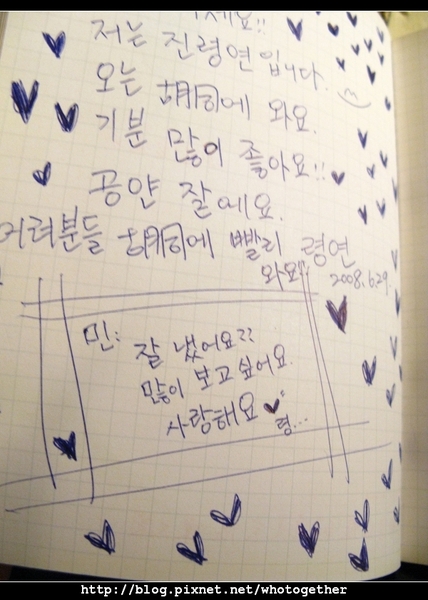 세요!!
저는 진령연입니다.
오는 胡同에 와요.
기분 많이 좋아요!!
공얀 잘에요.
어러분들 胡同에 빨리 와요! 령연
2008.6.29.
민: 잘 냈어요??
많이 보고 싶어요.
사랑해요 령...
http://blog.pixnet.net/whotogether